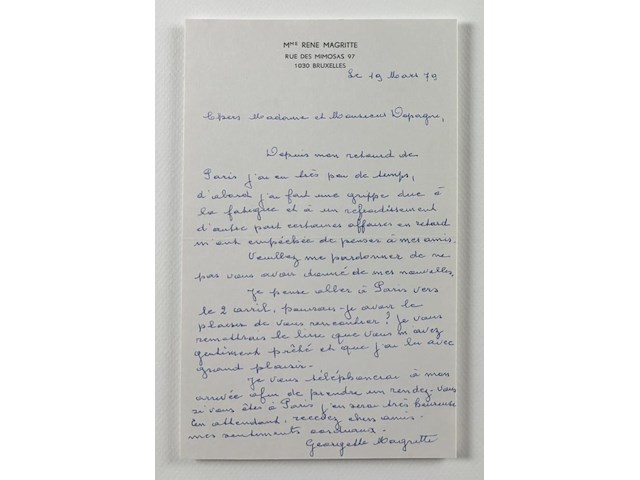 Mme RENE MAGRITTE
RUE DES MIMOSAS 97
1030 BRUXELLES
Le 19 Mars 79
Chers Madame et Monsieur Dopagne,
Depuis mon retour de
Paris j'ai eu très peu de temps,
d'abord j'ai fait une grippe due à
la fatigue et à un refroidissement
d'autre part certaines affaires en retard
m'ont empêchée de penser à mes amis.
Veuillez me pardonner de ne
pas vous avoir donné de mes nouvelles.
Je pense aller à Paris vers
le 2 avril, pourrais-je avoir le
plaisir de vous rencontrer? Je vous
remettrais le livre que vous m'avez
gentiment prêté et que j'ai lu avec
grand plaisir-
Je vous téléphonerai à mon
arrivée afin de prendre un rendez-vous
si vous êtes à Paris j'en serai très heureuse
En attendant, recevez chers amis-
mes sentiments cordiaux.
Georgette Magritte